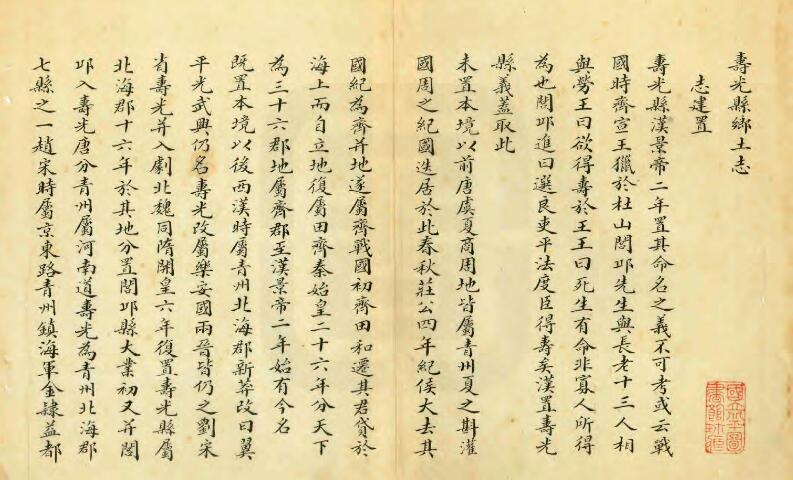 壽光縣鄉土志
志建置
壽光縣漢景帝二年置其命名之義不可考或云戰
國時齊宣王獵於杜山閭邱先生與長老十三人相
與勞王曰欲得壽於王王曰死生有命非寡人所得
為也閭邱進曰選良吏平法度臣得壽矣漢置壽光
縣義蓋取此
未置本境以前唐虞夏商周地皆屬青州夏之斟灌
國周之紀國迭居於此春秋莊公四年紀侯大去其
國紀為齊并地遂屬齊戰國初齊田和遷其君貸於
海上而自立地復屬田齊秦始皇二十六年分天下
為三十六郡地屬齊郡至漢景帝二年始有今名
既置本境以後西漢時屬青州北海郡新莽改曰翼
平光武興仍名壽光改屬樂安國兩晉皆仍之劉宋
省壽光并入劇北魏同隋開皇六年復置壽光縣屬
北海郡十六年於其地分置閭邱縣大業初又并閭
邱入壽光唐分青州屬河南道壽光為青州北海郡
七縣之一趙宋時屬京東路青州鎮海軍金隸益都
國立北平圖
書館珍藏